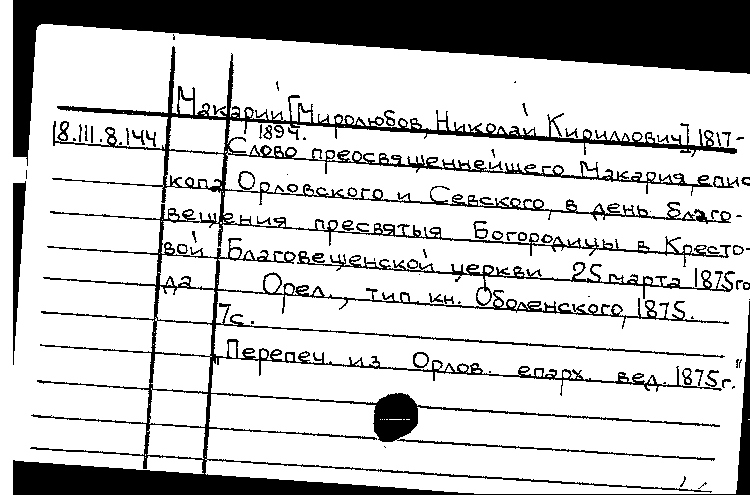 Макарий [Миролюбов, Николай Кириллович], 1817-
1894.
18.III.8.144.
Слово преосвященнейшего Макария, епис
копа Орловского и Севского, в день Благо-
вещения пресвятыя Богородицы в Кресто-
вой Благовещенской церкви 25 марта 1875 го
да Орел., тип. кн. Оболенского, 1875.
7с.
"Перепеч. из Орлов. епарх. вед. 1875 г."